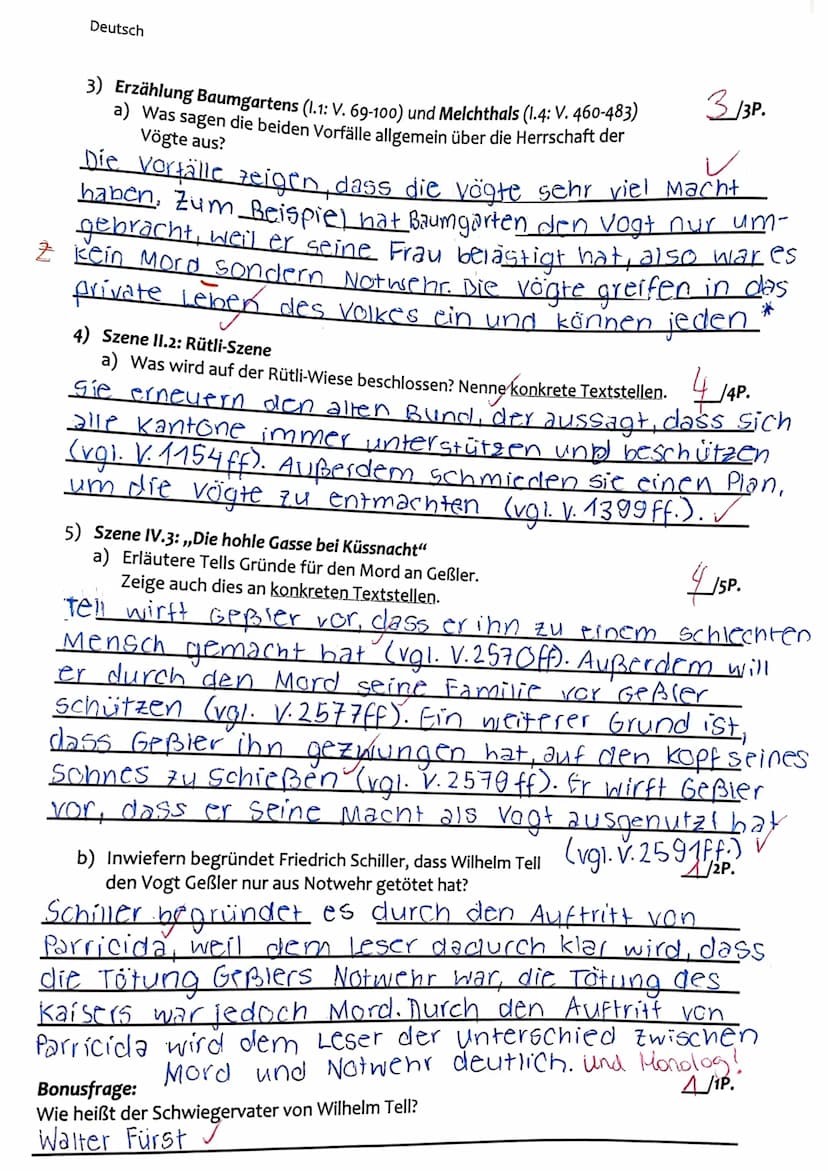 Deutsch
3) Erzählung Baumgartens (I.1: V. 69-100) und Melchthals (I.4: V. 460-483)
3/3P.
a) Was sagen die beiden Vorfälle allgemein über die Herrschaft der
Vögte aus?
Die Vorfälle zeigen, dass die Vögte sehr viel Macht
haben. Zum Beispiel hat Baumgarten den Vogt nur um-
gebracht, weil er seine Frau belästigt hat, also war es
Z kein Mord sondern Notwehr. Die Vögte greifen in das
private Leben des Volkes ein und können jeden *
4) Szene II.2: Rütli-Szene
a) Was wird auf der Rütli-Wiese beschlossen? Nenne konkrete Textstellen.
4/4P.
Sie erneuern den alten Bund, der aussagt, dass sich
alle Kantone immer unterstützen und beschützen
(vgl. V. 1154ff). Außerdem schmieden sie einen Plan,
um die Vögte zu entmachten (vgl. V. 1399ff.).
5) Szene IV.3: „Die hohle Gasse bei Küssnacht“
a) Erläutere Tells Gründe für den Mord an Geßler.
Zeige auch dies an konkreten Textstellen.
4/5P.
Tell wirft Geßler vor, dass er ihn zu einem schlechten
Mensch gemacht hat (vgl. V. 2570ff). Außerdem will
er durch den Mord seine Familie vor Geßler
schützen (vgl. V. 2577ff). Ein weiterer Grund ist,
dass Geßler ihn gezwungen hat, auf den Kopf seines
Sohnes zu schießen (vgl. V. 2579ff). Er wirft Geßler
vor, dass er seine Macht als Vogt ausgenutzt hat
(vgl. V. 2591ff.)
b) Inwiefern begründet Friedrich Schiller, dass Wilhelm Tell
den Vogt Geßler nur aus Notwehr getötet hat?
1/2P.
Schiller begründet es durch den Auftritt von
Parricida, weil dem Leser dadurch klar wird, dass
die Tötung Geßlers Notwehr war, die Tötung des
Kaisers war jedoch Mord. Durch den Auftritt von
Parricida wird dem Leser der Unterschied zwischen
Mord und Notwehr deutlich. und Monolog!
Bonusfrage:
1/1P.
Wie heißt der Schwiegervater von Wilhelm Tell?
Walter Fürst